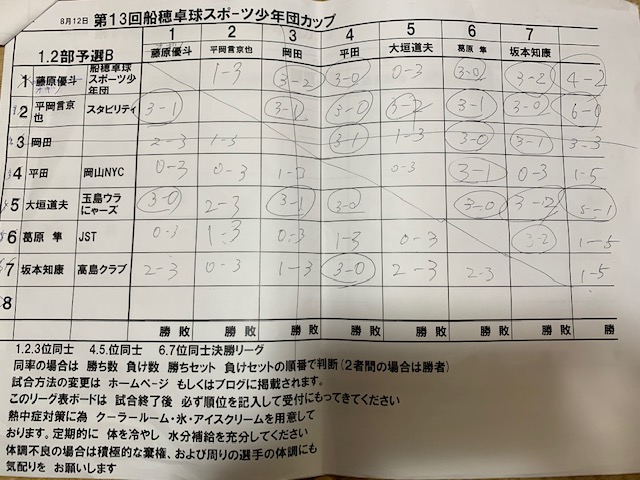 8月12日 第13回船穂卓球スポーツ少年団カップ
1 2 3 4 5 6 7
1.2部予選B 藤原優斗 平岡言京也 岡田 平田 大垣道夫 葛原 隼 坂本知康
1 藤原優斗 船穂卓球スポーツ少年団 1-3 3-2 3-0 0-3 3-0 3-2 4-2
2 平岡言京也 スタビリティ 3-1 3-1 3-0 3-2 3-1 3-0 6-0
3 岡田 2-3 1-3 3-1 1-3 3-0 3-1 3-3
4 平田 岡山NYC 0-3 0-3 1-3 0-3 3-1 0-3 1-5
5 大垣道夫 玉島ウラにゃーズ 3-0 2-3 3-1 3-0 3-0 3-2 5-1
6 葛原 隼 JST 0-3 1-3 0-3 1-3 0-3 3-2 1-5
7 坂本知康 高島クラブ 2-3 0-3 1-3 3-0 2-3 2-3 1-5
8
勝 敗 勝 敗 勝 敗 勝 敗 勝 敗 勝 敗 勝 敗
1.2.3位同士 4.5.位同士 6.7位同士決勝リーグ
同率の場合は 勝ち数 負け数 勝ちセット 負けセットの順番で判断(2者間の場合は勝者)
試合方法の変更は ホームページ もしくはブログに掲載されます。
このリーグ表ボードは 試合終了後 必ず順位を記入して受付にもってきてください
熱中症対策に為 クーラールーム・氷・アイスクリームを用意して
おります。定期的に 体を冷やし 水分補給を充分してください
体調不良の場合は積極的な棄権、および周りの選手の体調にも
気配りを お願いします